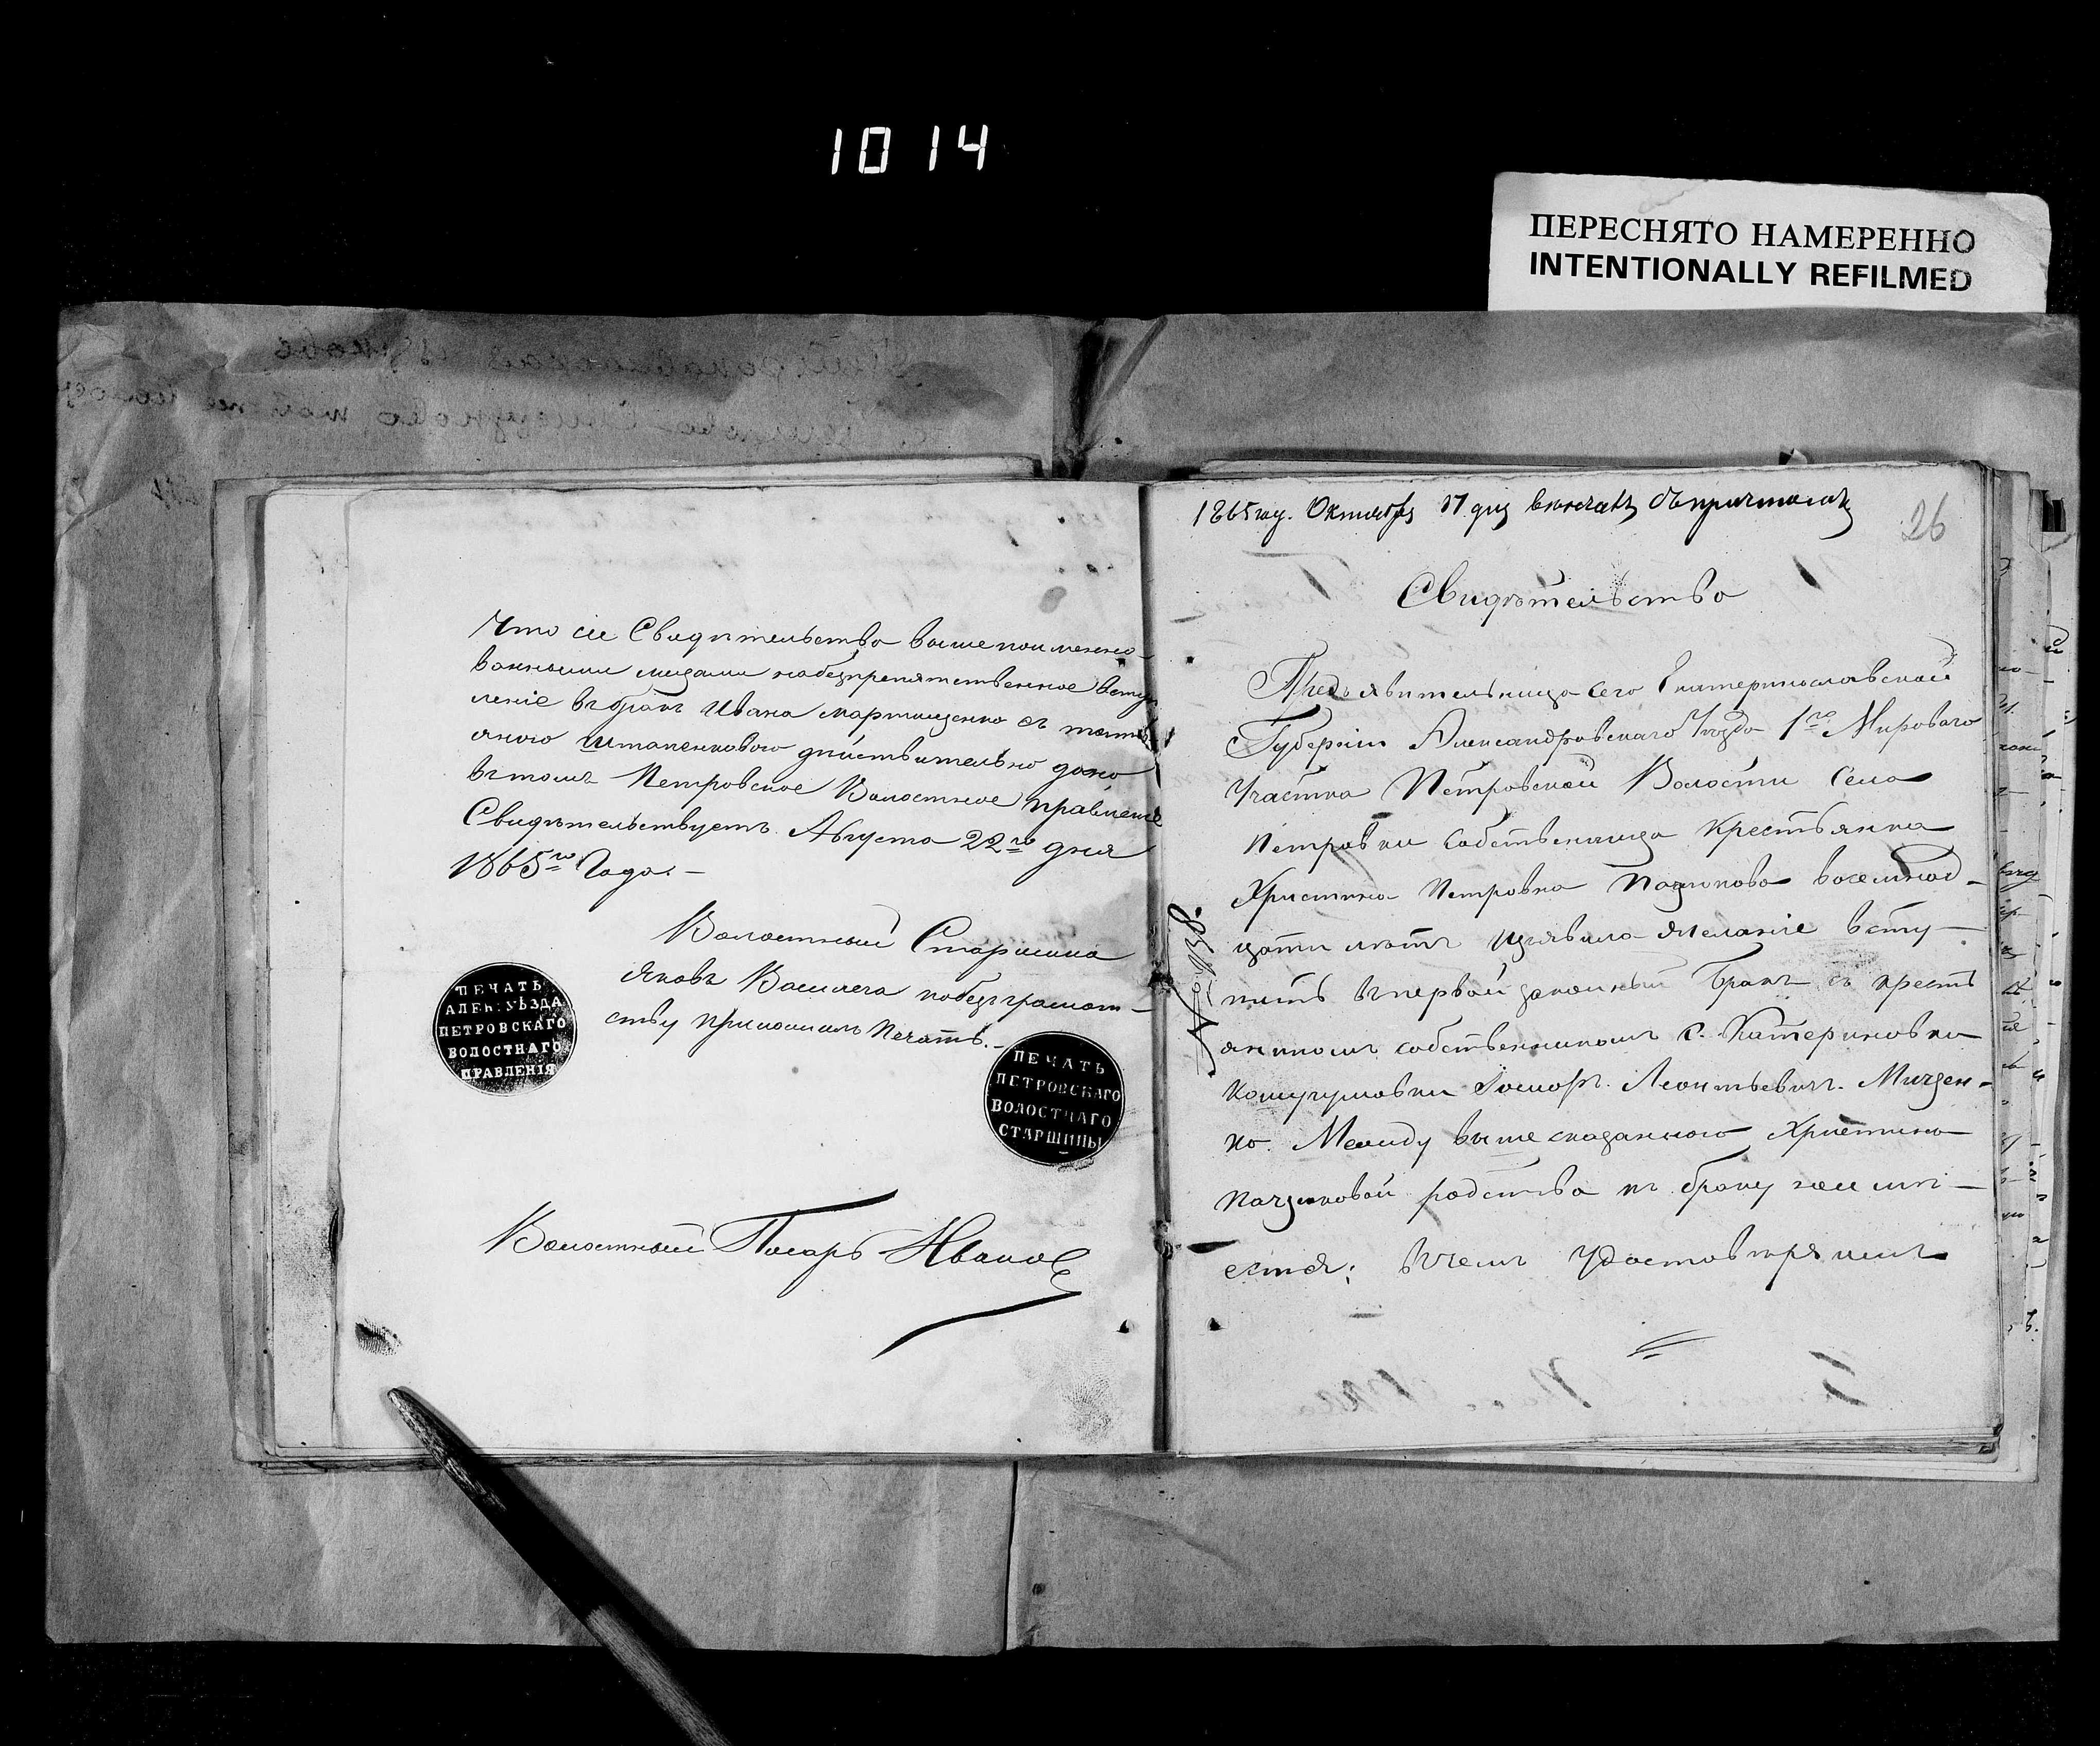 1014
ПЕРЕСНЯТО НАМЕРЕННО
INTENTIONALLY REFILMED
Что сіе Свидѣтельство вышепоимено-
ванными лицами на безпрепятственное всту
леніе въ бракъ Ивана Мартищенко съ
действительно дано
въ томъ Петровское Волостное правленіе
Свидѣтельствуетъ. Августа 22го дня
1865го Года. —
Волостный Старшина
Яковъ Василега по безграмот-
ству приложилъ Печать. —
ПЕЧАТЬ
АЛЕК: УѢЗДА
ПЕТРОВСКАГО
ВОЛОСТНАГО
ПРАВЛЕНІЯ
ПЕЧАТЬ
ПЕТРОВСКАГО
ВОЛОСТНАГО
СТАРШИНЫ
Волостный Писарь Иванов
1865 году. Октября 17 дня
26
Свидѣтельство
Предъявительница сего Екатеринославской
Губерніи Александровскаго Уѣзда 1го Мироваго
Участка Петровской Волости Села
Петровки собственница Крестьянка
Христина Петровна восемнад-
цати лѣтъ изъявила желаніе всту-
пить въ первой законный Бракъ съ крестъ
яниномъ собственникомъ с. Катериновки
Леонтьевичъ.
ко. Между выше сказанного Христино
родства къ браку не имѣ-
ется; въ чемъ Удостовѣряемъ
№ 938.